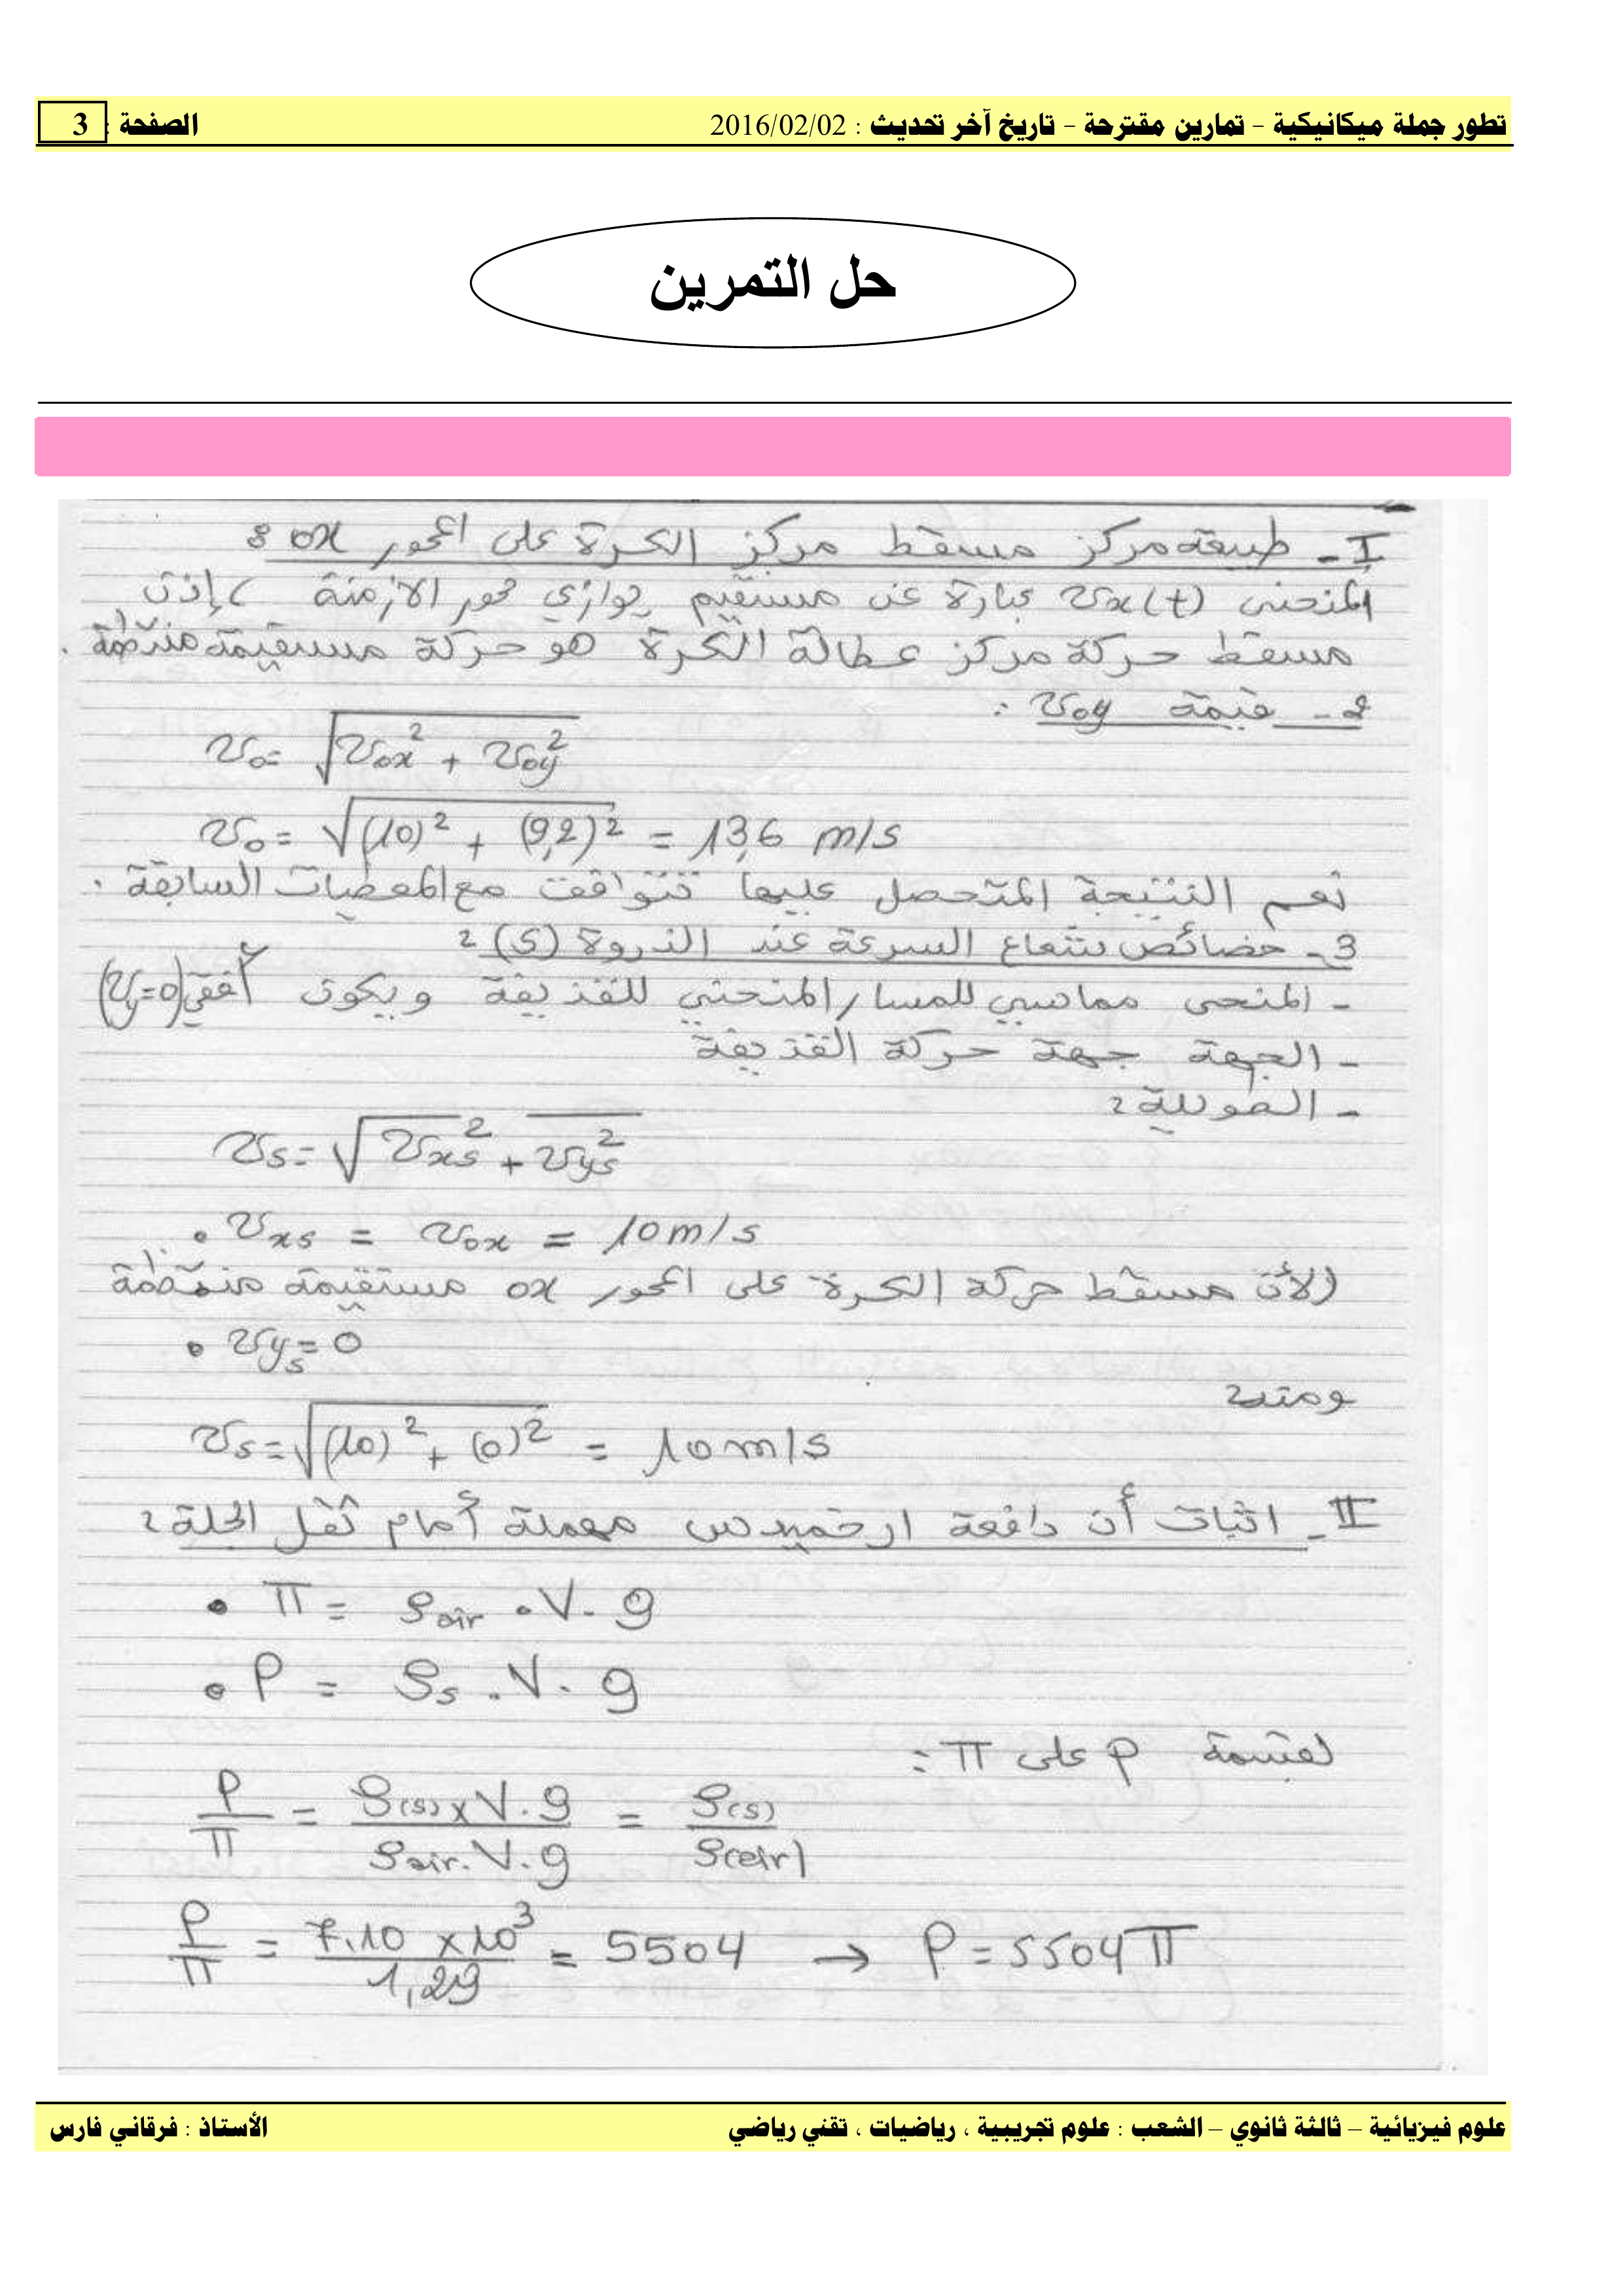 تطور جملة ميكانيكية – تمارين مقترحة – تاريخ آخر تحديث : 2016/02/02 الصفحة : 3
حل التمرين
I - طبيعة مركز مسقط مركز الكرة على المحور ox :
المنحنى vx(t) عبارة عن مستقيم يوازي محور الازمنة ، إذن
مسقط حركة مركز عطالة الكرة هو حركة مستقيمة منتظمة .
2 - قيمة v0y :
v0 = √(v0x² + v0y²)
v0 = √((10)² + (9,2)²) = 13,6 m/s
نعم النتيجة المتحصل عليها تتوافق مع المعطيات السابقة .
3 - خصائص شعاع السرعة عند الذروة (S) :
- المنحى مماسي للمسار المنحني للقذيفة ويكون أفقي (vy=0)
- الجهة جهة حركة القذيفة
- الطويلة :
vs = √(vxs² + vys²)
• vxs = v0x = 10 m/s
(لأن مسقط حركة الكرة على المحور ox مستقيمة منتظمة
• vys = 0
ومنه :
vs = √((10)² + (0)²) = 10 m/s
II - اثبات أن دافعة ارخميدس مهملة أمام ثقل الجلة :
• π = ρair . V . g
• P = ρs . V . g
بقسمة P على π :
P/π = ρ(s) x V . g / ρair . V . g = ρ(s) / ρ(air)
P/π = 7.10 x 10³ / 1,29 = 5504 → P = 5504 π
علوم فيزيائية – ثالثة ثانوي – الشعب : علوم تجريبية ، رياضيات ، تقني رياضي الأستاذ : فرقاني فارس